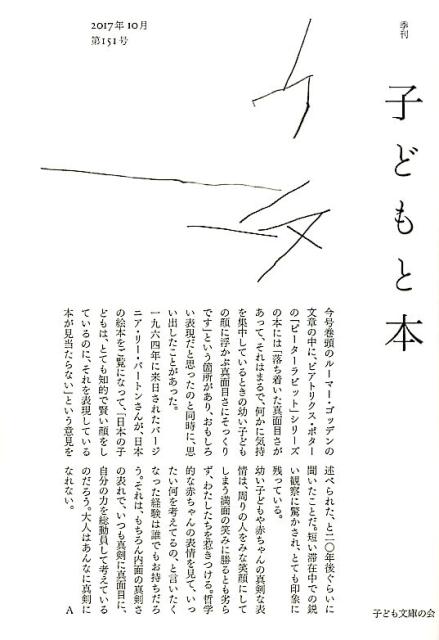 2017年10月
第151号
季刊
子どもと本
今号巻頭のルーマー・ゴッデンの
文章の中に、ビアトリクス・ポター
の「ピーターラビット」シリーズ
の本には「落ち着いた真面目さが
あって、それはまるで、何かに気持
を集中しているときの幼い子ども
の顔に浮かぶ真面目さにそっくり
です」という箇所があり、おもしろ
い表現だと思ったのと同時に、思
い出したことがあった。
一九六四年に来日されたバージ
ニア・リー・バートンさんが、日本
の絵本をご覧になって、「日本の子
どもは、とても知的で賢い顔をし
ているのに、それを表現している
本が見当たらない」という意見を
述べられた、と二〇年後ぐらいに
聞いたことだ。短い滞在中での鋭
い観察に驚かされ、とても印象に
残っている。
幼い子どもや赤ちゃんの真剣な表
情は、周りの人をみな笑顔にして
しまう満面の笑みに勝るとも劣ら
ず、わたしたちを惹きつける。哲学
的な赤ちゃんの表情を見て、いっ
たい何を考えてるの、と言いたく
なった経験は誰でもお持ちだろ
う。それは、もちろん内面の真剣さ
の表れで、いつも真剣に真面目に、
自分の力を総動員して考えている
のだろう。大人はあんなに真剣に
なれない。
A
子ども文庫の会